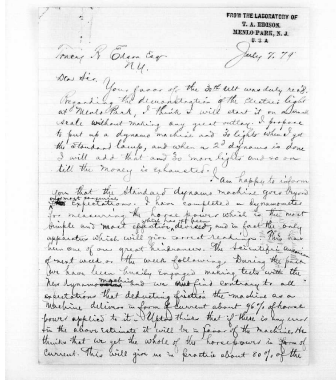 FROM THE LABORATORY OF
T. A. EDISON,
MENLO PARK, N. J.
U. S. A
July 7, 79
Tracy R Edson Esq
N.Y.
Dear Sir.
Your favor of the 30th ult was duly rec'd
Regarding the demonstration of the Electric light
at Menlo Park, I think I will start it on a small
scale without making any great outlay. I propose
to put up a dynamo machine and 30 lights when I get
the Standard lamp, and when a 2d dynamo is done
I will add that and 30 more lights and so on
till the money is exhausted.
Am happy to inform
you that the Standard dynamo machine goes beyond
my most sanguine Expectations. I have completed a dynamometer
for measuring the horse power which is the most
simple and most effective devised, and in fact the only
apparatus which will give correct readings. This has
been one of our great hindrances. The Scientific
of next week or the week following. During the past
we have been busily engaged making tests with the
new dynamo machine and find contrary to all
expectations that deducting friction the machine as a
machine delivers in form of current about 96% of horse
power applied to it. Upton thinks that if there is any error
in the above estimate it will be in favor of the machine. He
thinks that we get the whole of the horse power in form of
current. This will give us in practice about 80% of the